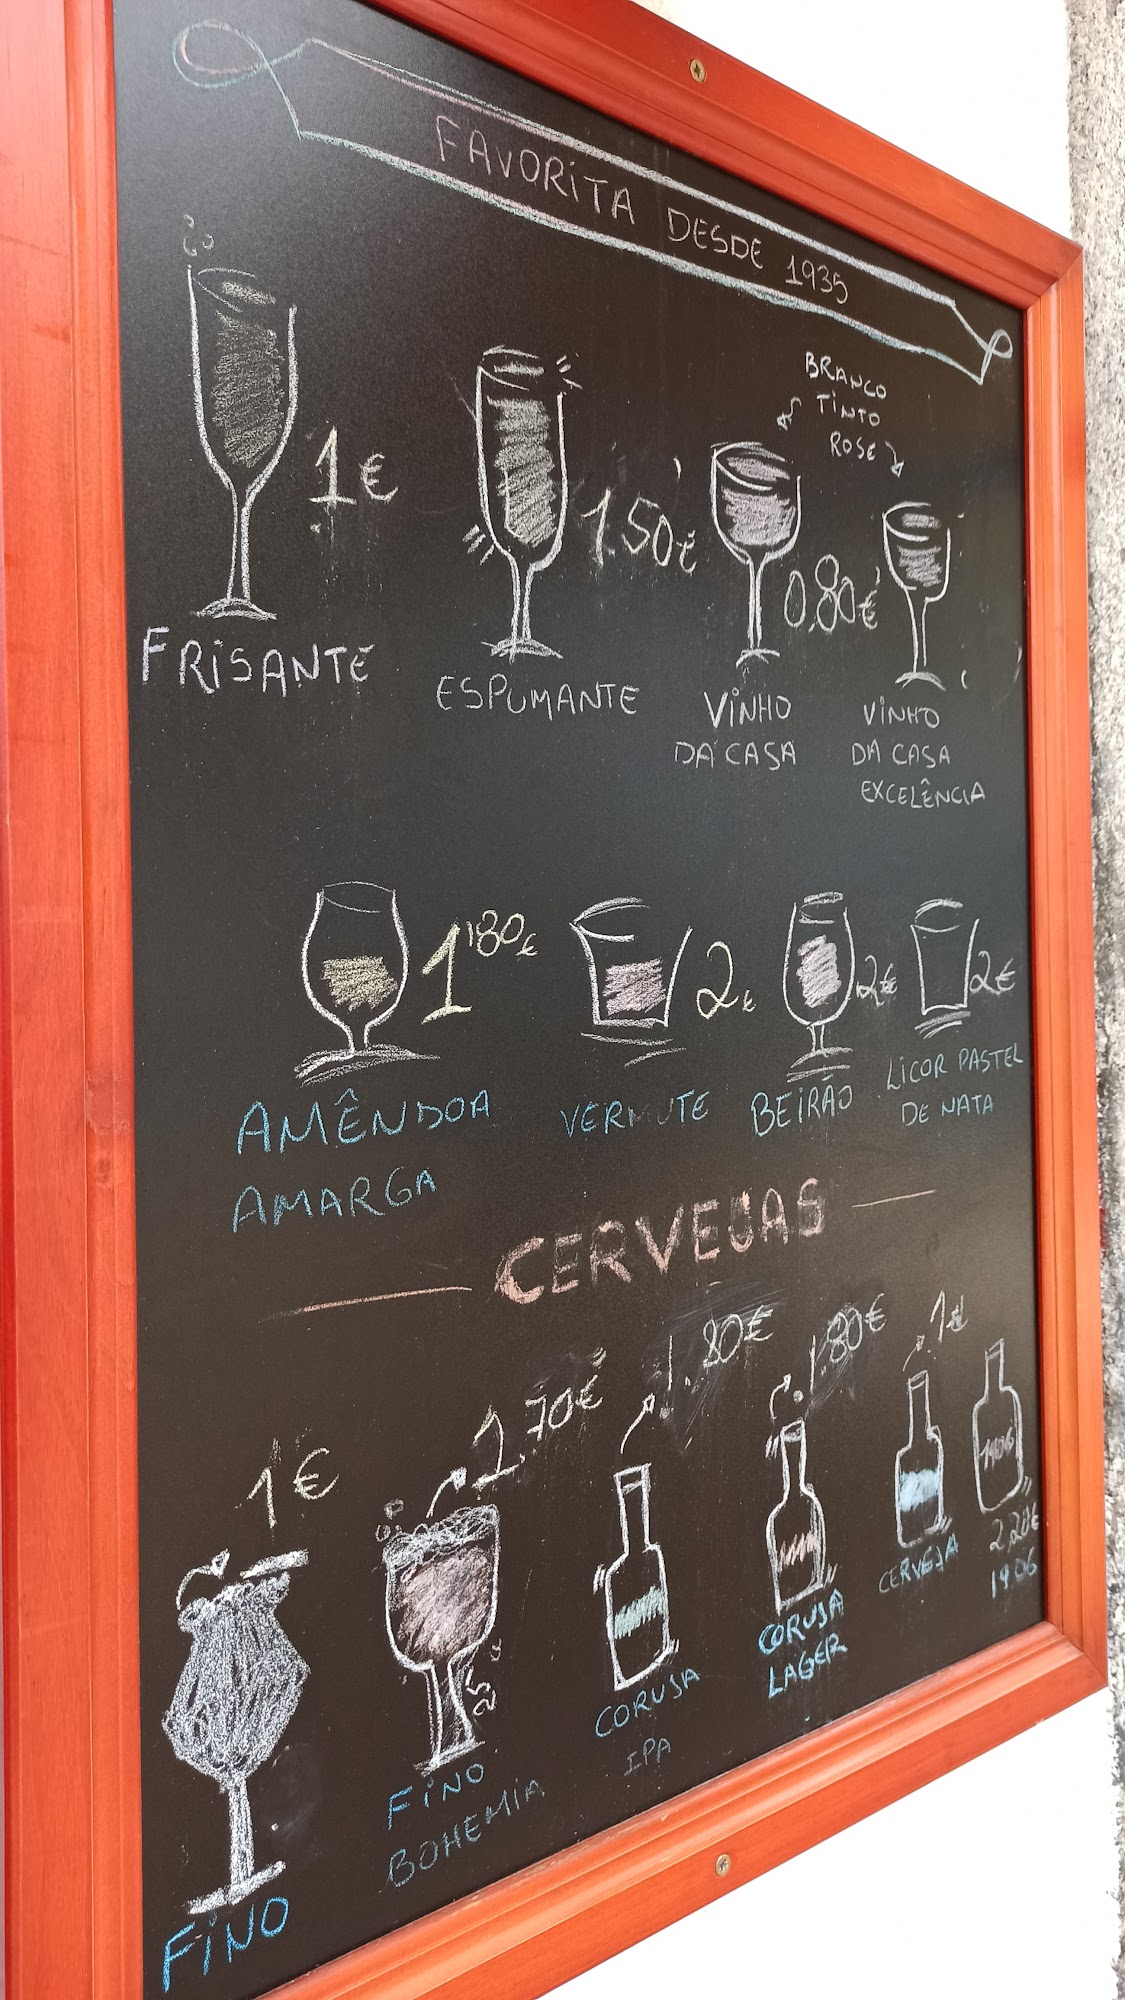 FAVORITA DESDE 1935
BRANCO
TINTO
ROSE
1€
1.50€
0,80€
FRISANTE
ESPUMANTE
VINHO
DA CASA
VINHO
DA CASA
EXCELÊNCIA
1,80€
2€
2€
2€
AMÊNDOA
AMARGA
VERMUTE
BEIRÃO
LICOR PASTEL
DE NATA
CERVEJAS
1€
1.70€
1.80€
1.80€
1€
1906
FINO
FINO
BOHEMIA
CORUJA
IPA
CORUJA
LAGER
CERVEJA
2,20€
1906